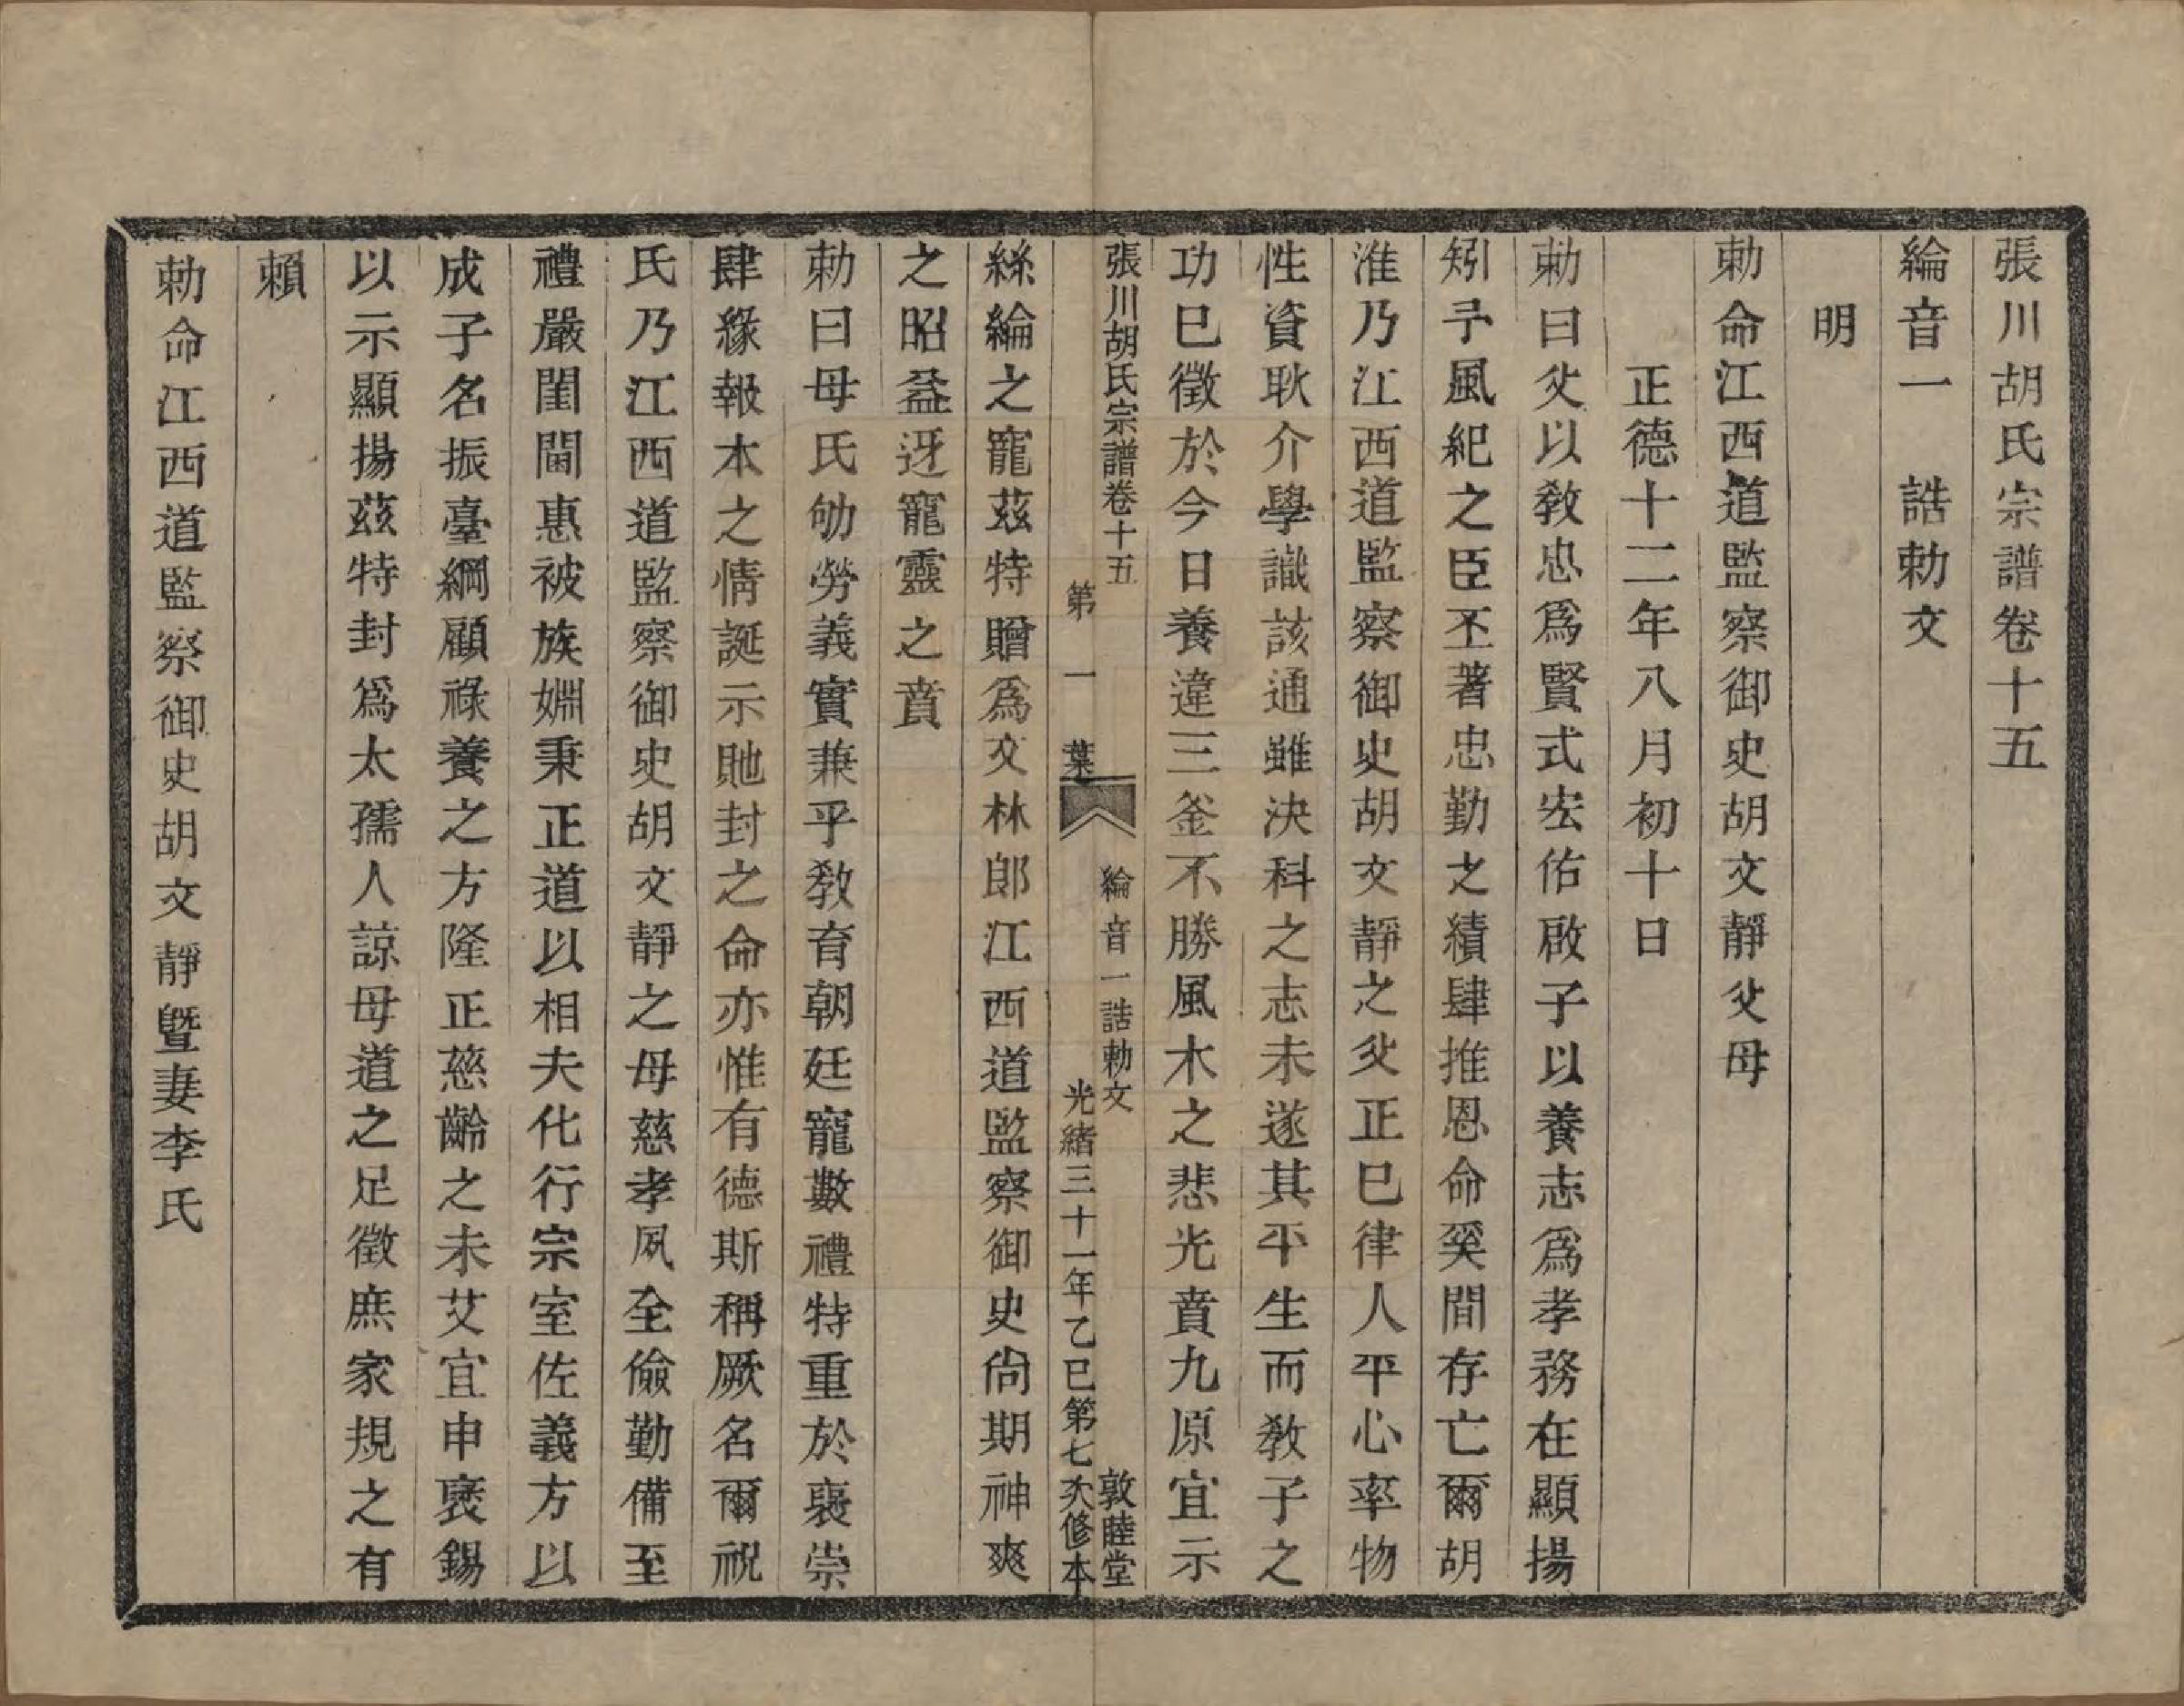 張川胡氏宗譜卷十五
綸音一　誥勅文
明
勅命江西道監察御史胡文靜父母
正德十二年八月初十日
勅曰父以敎忠爲賢式宏佑啟子以養志爲孝務在顯揚
矧予風紀之臣丕著忠勤之績肆推恩命奚間存亡爾胡
淮乃江西道監察御史胡文靜之父正已律人平心率物
性資耿介學識該通雖決科之志未遂其平生而敎子之
功已徵於今日養違三釜不勝風木之悲光賁九原宜示
張川胡氏宗譜卷十五
第一葉
綸音一誥勅文
光緒三十一年乙巳第七次修本
敦睦堂
絲綸之寵茲特贈爲文林郎江西道監察御史尙期神爽
之昭益迓寵靈之賁
勅曰母氏劬勞義實兼乎敎育朝廷寵數禮特重於襃崇
肆緣報本之情誕示貤封之命亦惟有德斯稱厥名爾祝
氏乃江西道監察御史胡文靜之母慈孝夙全儉勤備至
禮嚴閨閫惠被族婣秉正道以相夫化行宗室佐義方以
成子名振臺綱顧祿養之方隆正慈齡之未艾宜申襃錫
以示顯揚茲特封爲太孺人諒母道之足徵庶家規之有
賴
勅命江西道監察御史胡文靜曁妻李氏